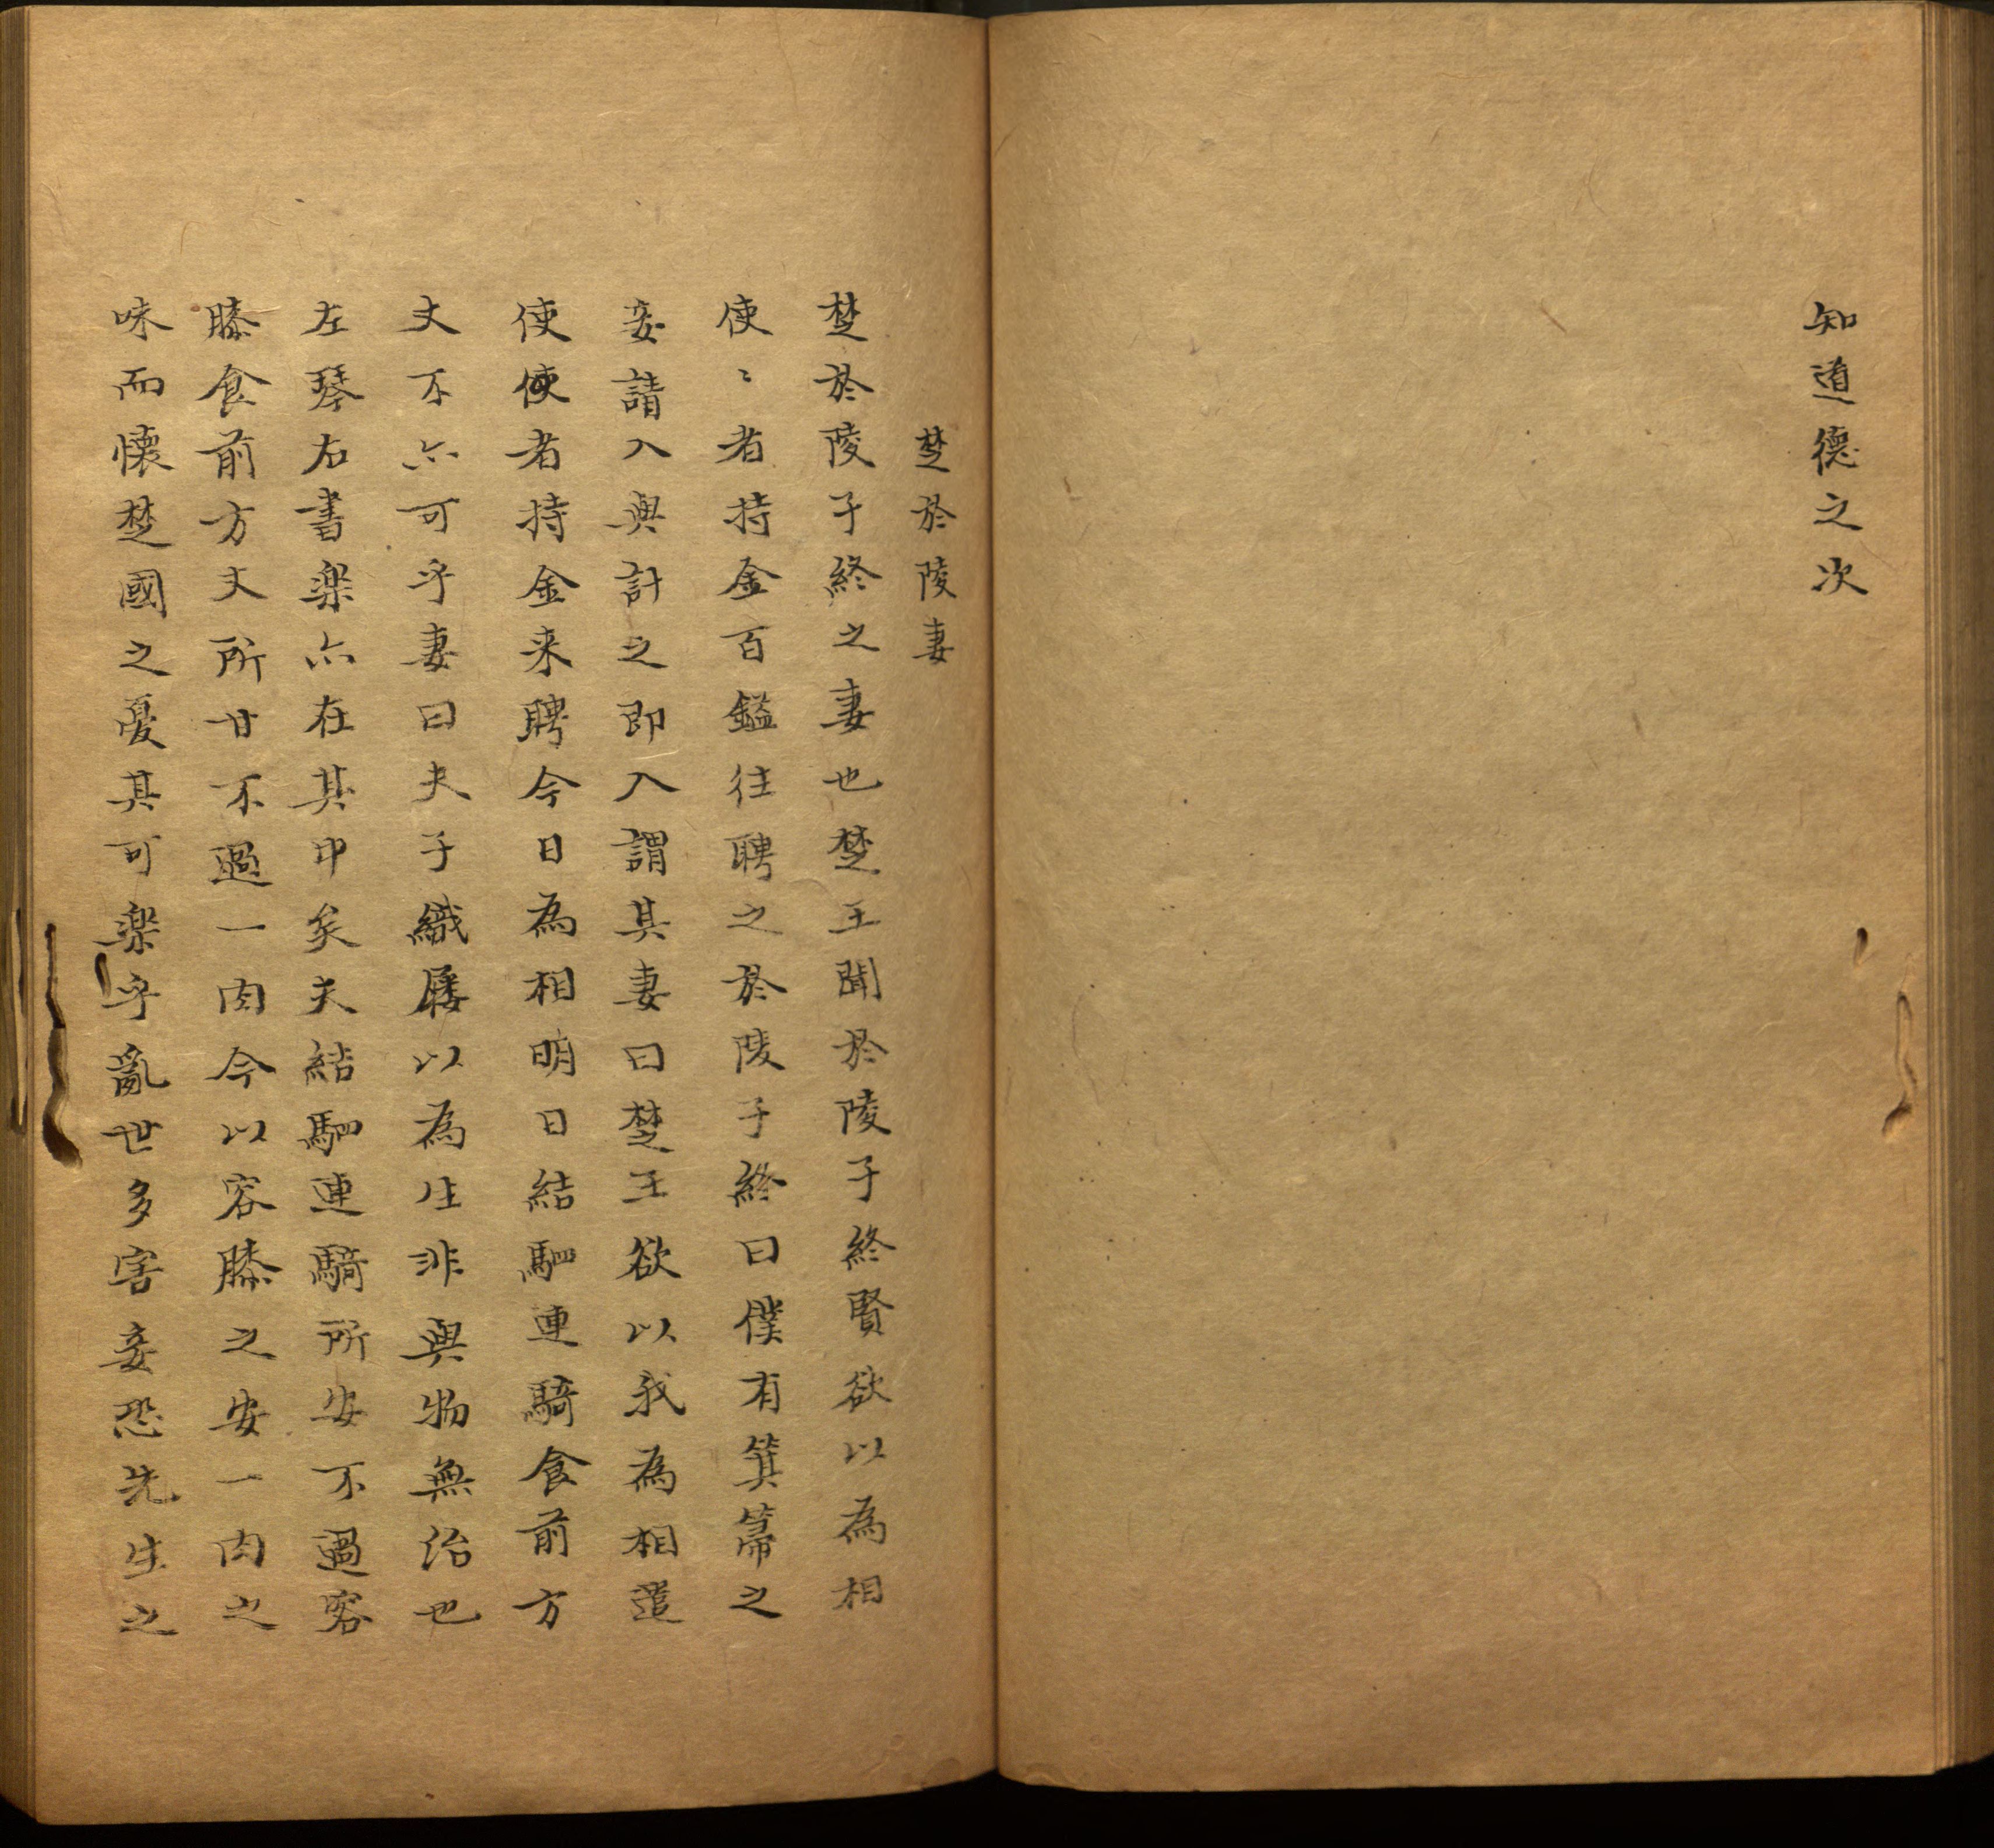 知道德之次
楚於陵妻
楚於陵子終之妻也楚王聞於陵子終賢欲以為相
使〻者持金百鎰往聘之於陵子終曰僕有箕箒之
妾請入與計之即入謂其妻曰楚王欲以我為相遣
使使者持金来聘今日為相明日結駟連騎食前方
丈不亦可乎妻曰夫子織屨以為生非與物無治也
左琴右書楽亦在其中矣夫結駟連騎所安不過容
膝食前方丈所甘不過一肉今以容膝之安一肉之
味而懐楚國之憂其可楽乎亂世多害妾恐先生之